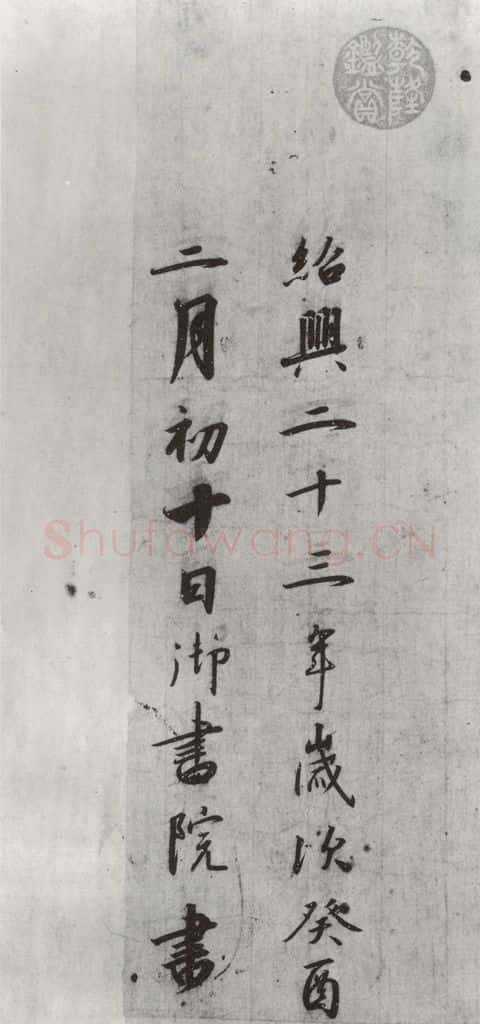 乾隆鑑賞
紹興二十三年歲次癸酉
二月初十日御書院書
Shufawang.CN